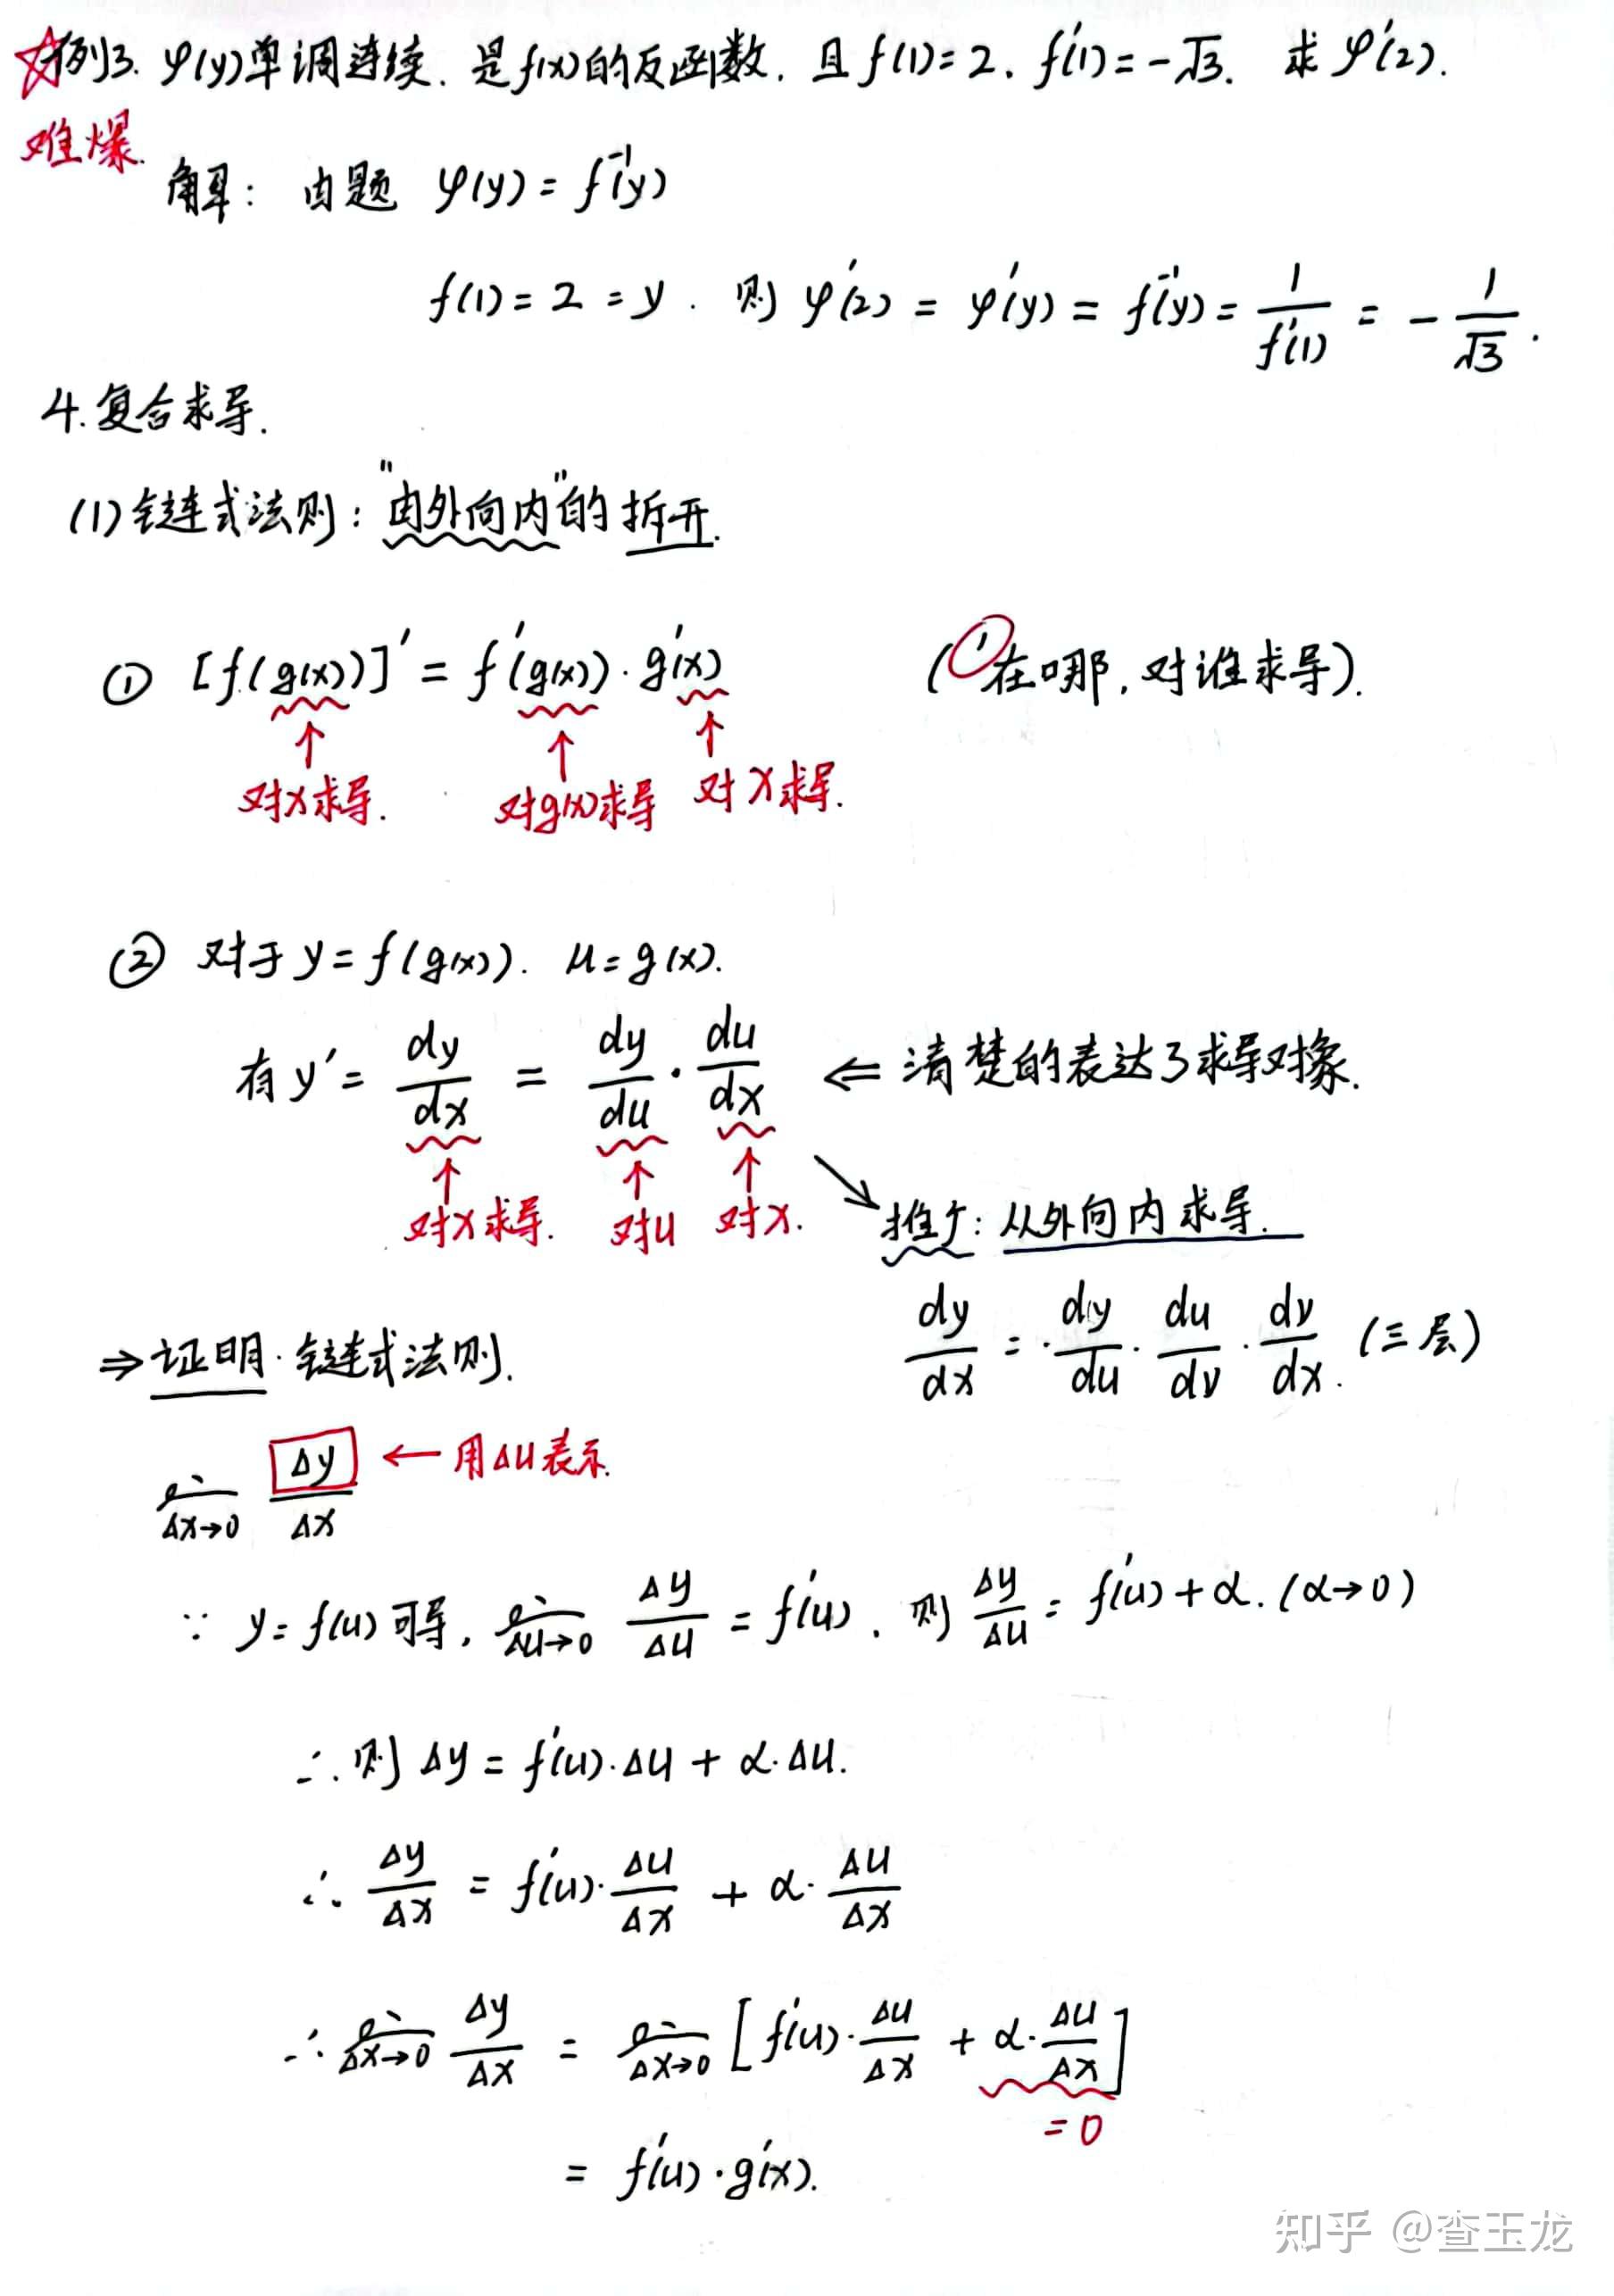 ☆例3. φ(y)单调连续. 是f(x)的反函数. 且f(1)=2. f'(1)=-√3. 求φ'(2).
难爆.
解: 由题 φ(y)=f⁻¹(y)
f(1)=2=y. 则 φ'(2) = φ'(y) = f⁻¹(y) = 1/f'(1) = -1/√3.
4.复合求导.
(1)链式法则: "由外向内"的拆开.
① [f(g(x))]' = f'(g(x))·g'(x) (' 在哪, 对谁求导).
↑ ↑ ↑
对x求导. 对g(x)求导 对x求导.
② 对于y=f(g(x)). u=g(x).
有y' = dy/dx = dy/du · du/dx ⇐ 清楚的表达了求导对象.
↑ ↑ ↑
对x求导. 对u 对x.
↘ 推广: 从外向内求导.
dy/dx = dy/du · du/dv · dv/dx. (三层)
⇒证明·链式法则.
lim Δx→0 Δy/Δx ← 用Δu表示.
∵ y=f(u)可导, lim Δu→0 Δy/Δu = f'(u). 则 Δy/Δu = f'(u)+α. (α→0)
∴则Δy = f'(u)·Δu + α·Δu.
∴ Δy/Δx = f'(u)·Δu/Δx + α·Δu/Δx
∴ lim Δx→0 Δy/Δx = lim Δx→0 [f'(u)·Δu/Δx + α·Δu/Δx]
=0
= f'(u)·g'(x).
知乎 @查玉龙